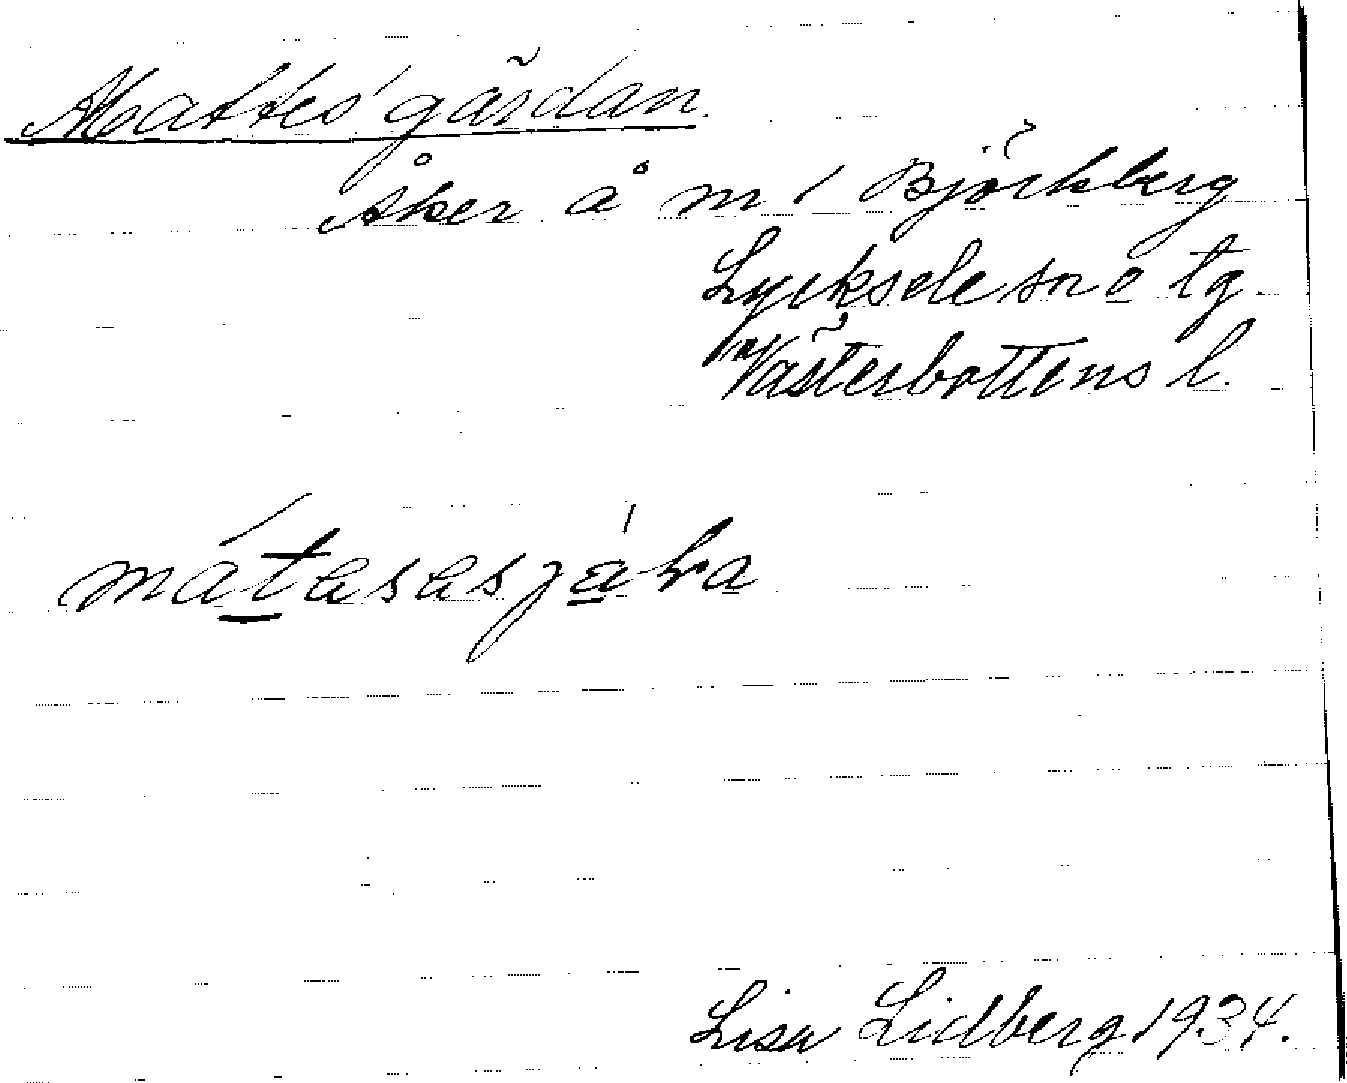 Mattes'gårdan.
Åker å m / Björkberg
Lycksele sn o tg.
Västerbottens l.
mátasasjára
Lisa Lidberg 1934.